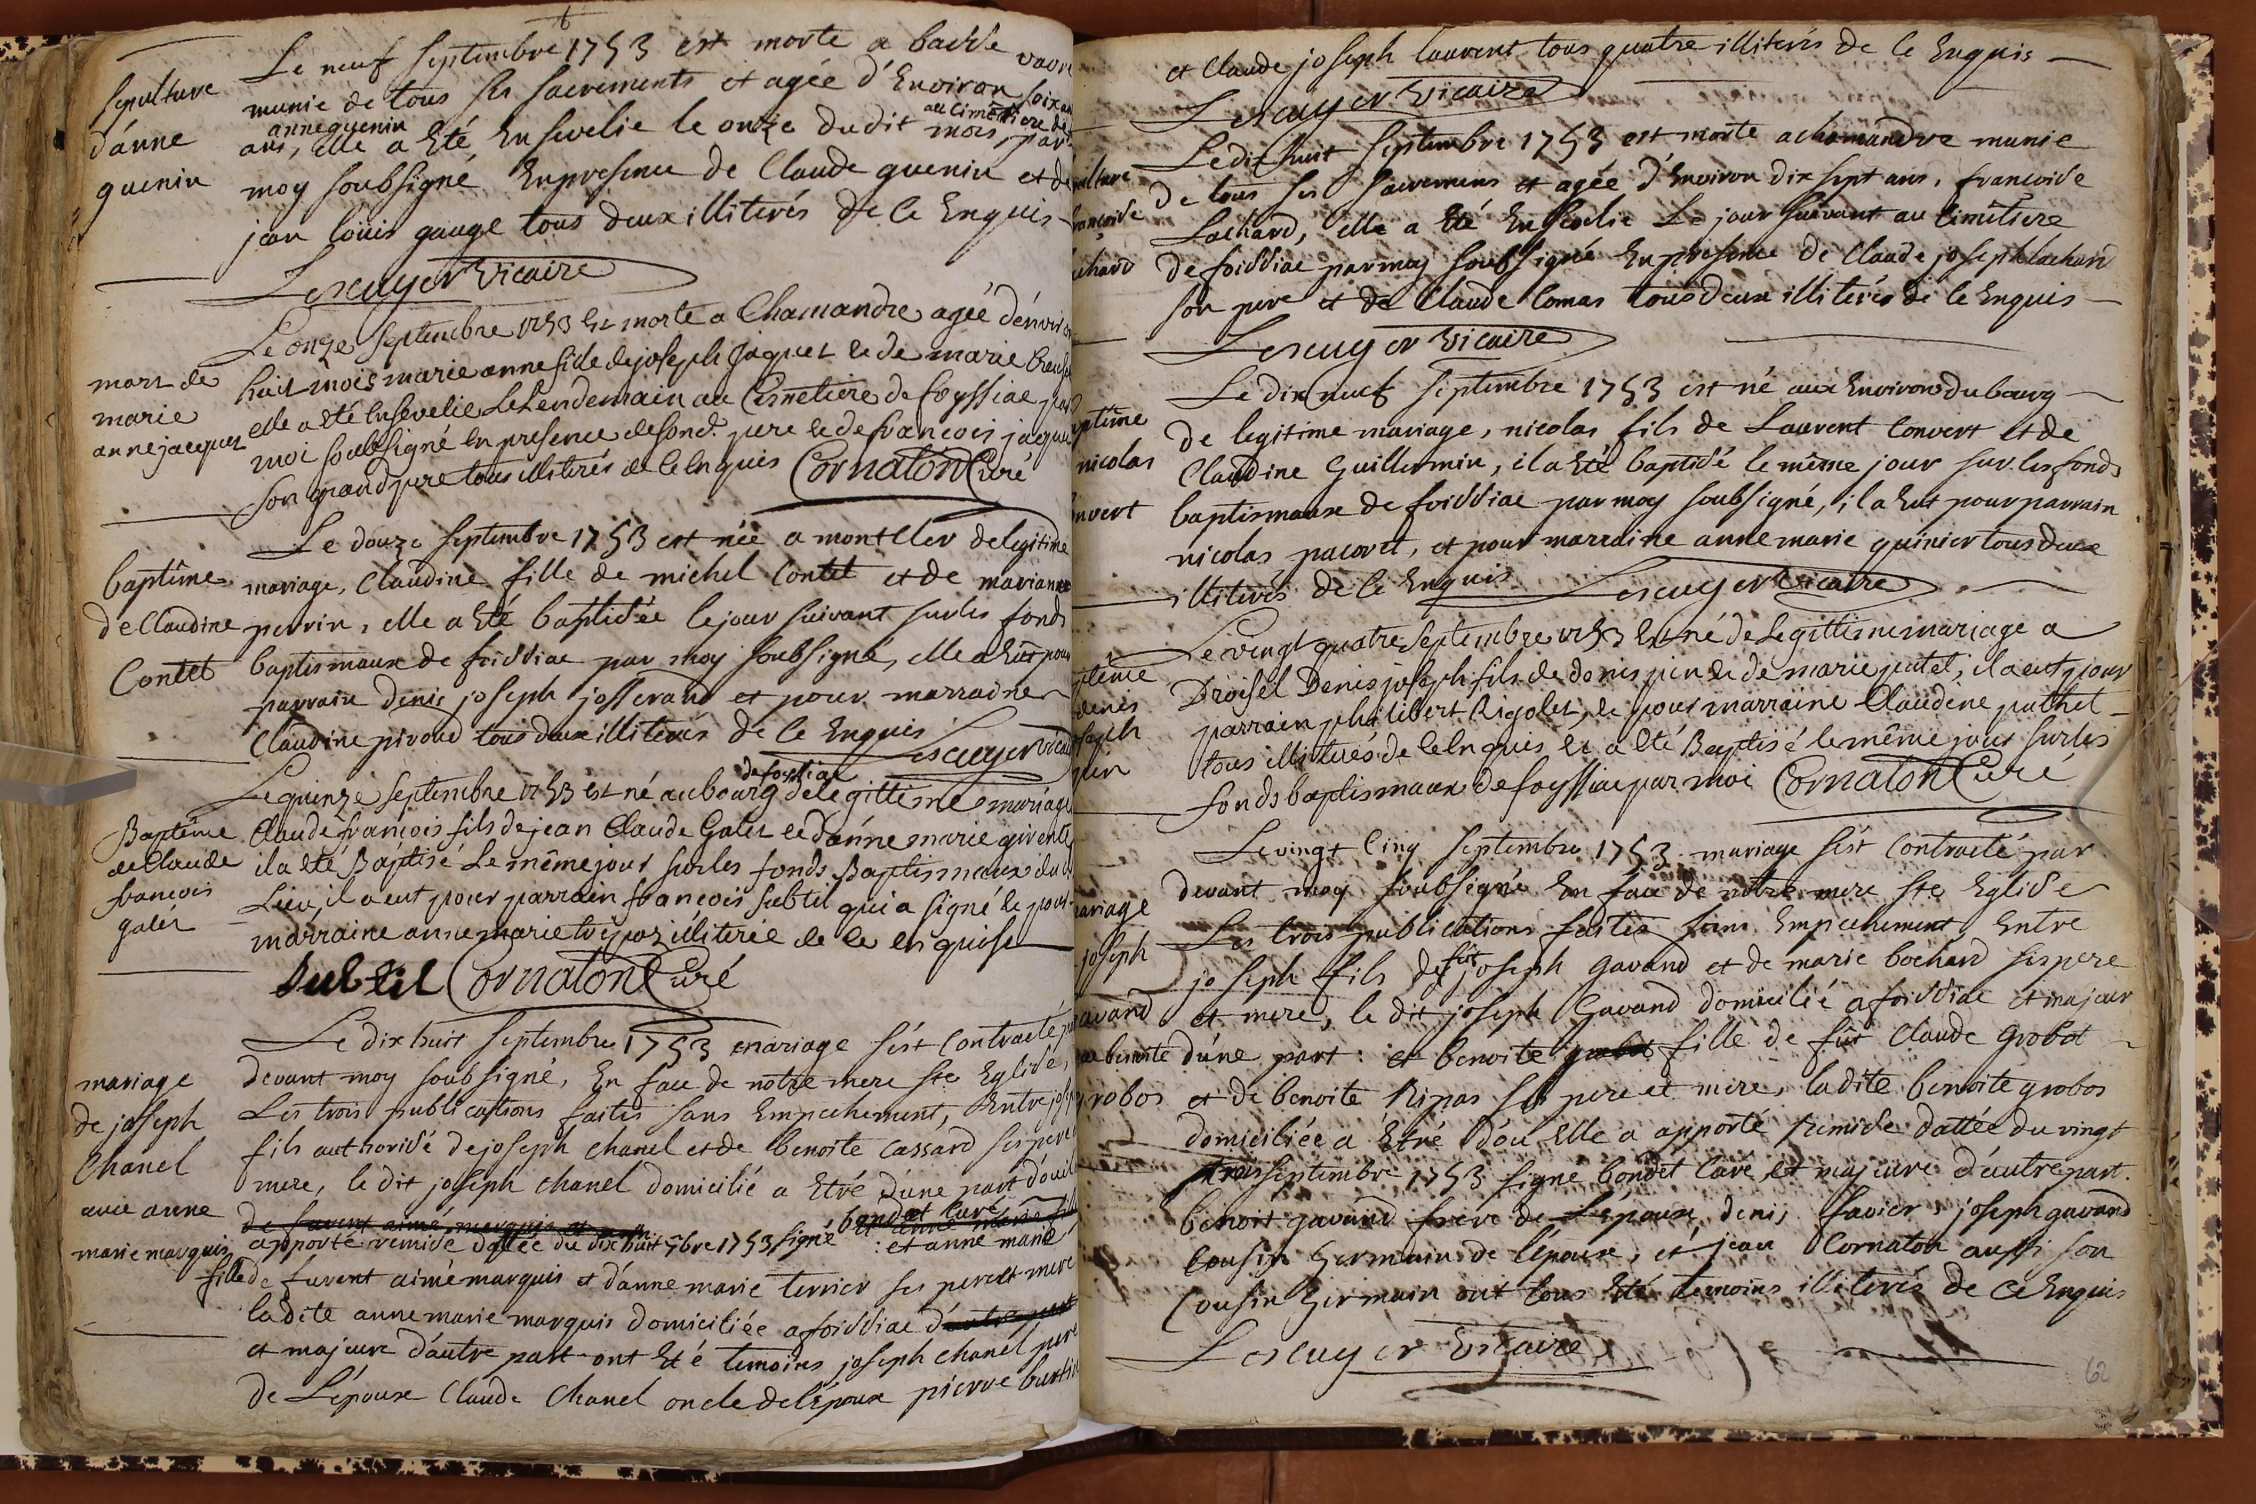 Sepulture
d'anne
guenin
Le neuf Septembre 1753 est morte a
munie de tous ses sacrements et agée d'Environ
anne guenin
au Cimetiere de
ans, elle a Eté Ensevelie le onze dudit mois, par
moy soubsigné Enpresence de Claude guenin et de
jean loüis gauge tous deux illiterés de ce Enquis
Lescuyer Vicaire
mort de
marie
anne jacquet
Le onze Septembre 1753 est morte a Chamandre agée d'environ
huit mois marie anne fille de joseph jaquet et de marie
elle a eté Ensevelie Le Lendemain au Cemetiere de foyssiac par
moi soubsigné en presence desond. pere et de francois jaquet
son grand pere tous illiterés de ce Enquis Cornaton Curé
baptême
de Claudine
Contet
Le douze Septembre 1753 est née a montcler de legitime
mariage, Claudine fille de michel Contet et de marianne
perrin, elle a Eté baptisée le jour suivant sur les fonds
baptismaux de foissiac par moy soubsigné, elle a Eut pour
parrain denis joseph josserand et pour marraine
Claudine pivoud tous deux illiterés de ce Enquis Lescuyer Vicaire
Baptême
de Claude
francois
galet
de foyssiac
Le quinze Septembre 1753 est né au bourg de legittime mariage
Claude françois fils de jean Claude Galet et d'anne marie
il a eté Baptisé Le même jour sur les fonds Baptismaux du
Lieu, il a eut pour parrain françois subtil qui a signé et pour
marraine anne marie illiterée de ce enquise
Subtil Cornaton Curé
mariage
de joseph
Chanel
avec anne
marie marquis
Le dix huit Septembre 1753 mariage s'est Contracté par
devant moy soubsigné, En face de notre mere ste Eglise,
Les trois publications faites sans Empechement, Entre joseph
fils authorisé de joseph chanel et de benoite cassard ses pere
mere, le dit joseph chanel domicilié a Etré d'une part d'ou il
de furent aimé marquis et
bondet curé
apporté remise dattée du dix huit 7bre 1753 signé et anne marie
fille de furent aimé marquis et d'anne marie terrier ses pere et mere
ladite anne marie marquis domiciliée a foissiac d'autre part
et majeure d'autre part ont Eté temoins joseph chanel pere
de L'époux Claude Chanel oncle de l'époux pierre
et Claude joseph laurent tous quatre illiterés de ce Enquis
Lescuyer Vicaire
Le dix huit Septembre 1753 est morte a chamandre munie
de tous ses sacremens et agée d'Environ dix sept ans, francoise
Lachard, elle a Eté Ensevelie Le jour suivant au Cimêtiere
de foissiac par moy soubsigné Enpresence de Claude joseph lachard
son pere et de Claude Comas tous deux illiterés de ce Enquis
Lescuyer Vicaire
baptême
nicolas
Convert
Le dix neuf Septembre 1753 est né aux Environs du bourg
de legitime mariage, nicolas fils de Laurent Convert et de
Claudine Guillermin, il a Eté baptisé le même jour sur les fonds
baptismaux de foissiac par moy soubsigné, il a Eut pour parrain
nicolas pacoret, et pour marraine anne marie quinier tous deux
illiterés de ce Enquis Lescuyer Vicaire
baptême
denis
joseph
pin
Le vingt quatre Septembre 1753 Est né de Legittime mariage a
Droisel Denis joseph fils de denis pin et de marie putet, il a eut pour
parrain philibert Rigolet, et pour marraine Claudene puthet
tous illiterés de ce Enquis et a eté Baptisé le même jour sur les
fonds baptismaux de foyssiac par moi Cornaton Curé
mariage
joseph
gavand
benoite
grobos
Le vingt Cinq Septembre 1753 mariage s'est Contracté par
devant moy soubsigné En face de notre mere ste Eglise
Les trois publications faites sans Empechement, Entre
joseph fils de fût joseph gavand et de marie bochard ses pere
et mere, le dit joseph Gavand domicilié a foissiac et majeur
d'une part: et benoite grobot fille de fût Claude grobot
et de benoite Ripas ses pere et mere, ladite benoite grobos
domiciliée a Etré d'ou Elle a apporté Remise dattée du vingt
trois Septembre 1753 signé bondet Curé, et majeure d'autre part.
benoit gavand frere de L'époux, denis favier, joseph gavand
Cousin Germain de l'époux, et jean Cornaton aussi son
Cousin Germain ont tous Eté temoins illiterés de ce Enquis
Lescuyer Vicaire
62